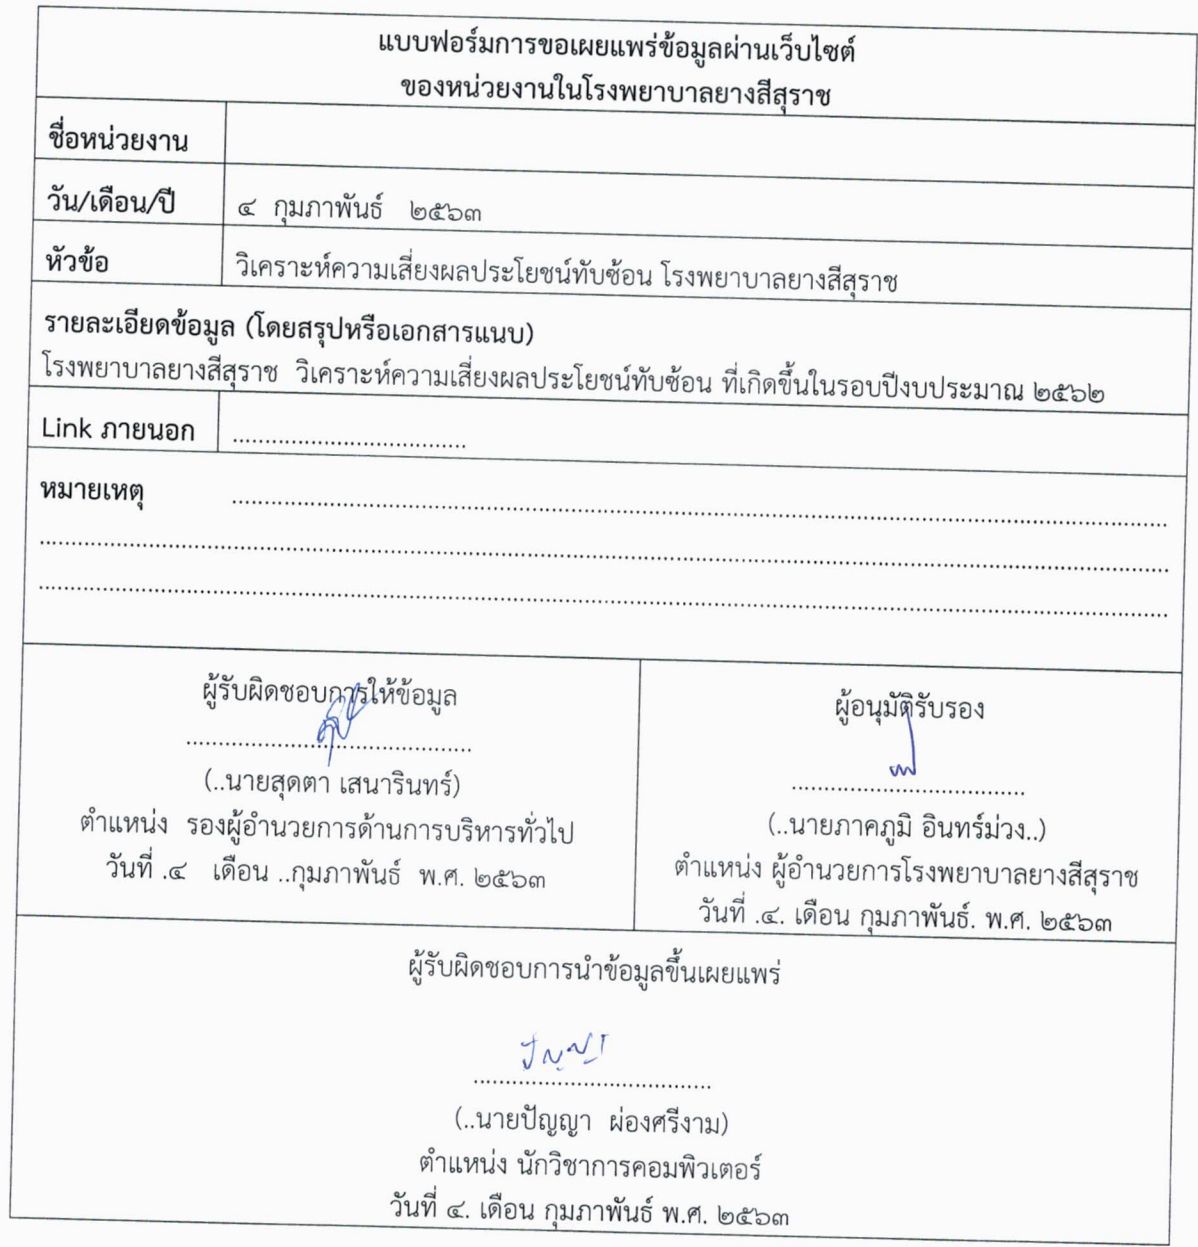 แบบฟอร์มการขอเผยแพร่ข้อมูลผ่านเว็บไซต์
ของหน่วยงานในโรงพยาบาลยางสีสุราช
ชื่อหน่วยงาน
วัน/เดือน/ปี ๔ กุมภาพันธ์ ๒๕๖๓
หัวข้อ วิเคราะห์ความเสี่ยงผลประโยชน์ทับซ้อน โรงพยาบาลยางสีสุราช
รายละเอียดข้อมูล (โดยสรุปหรือเอกสารแนบ)
โรงพยาบาลยางสีสุราช วิเคราะห์ความเสี่ยงผลประโยชน์ทับซ้อน ที่เกิดขึ้นในรอบปีงบประมาณ ๒๕๖๒
Link ภายนอก ....................................
หมายเหตุ ................................................................................
................................................................................
................................................................................
ผู้รับผิดชอบการให้ข้อมูล
............................................
(..นายสุดตา เสนารินทร์)
ตำแหน่ง รองผู้อำนวยการด้านการบริหารทั่วไป
วันที่ .๔ เดือน ..กุมภาพันธ์ พ.ศ. ๒๕๖๓
ผู้อนุมัติรับรอง
....................................
(..นายภาคภูมิ อินทร์ม่วง..)
ตำแหน่ง ผู้อำนวยการโรงพยาบาลยางสีสุราช
วันที่ .๔. เดือน กุมภาพันธ์. พ.ศ. ๒๕๖๓
ผู้รับผิดชอบการนำข้อมูลขึ้นเผยแพร่
ปัญญา
....................................
(..นายปัญญา ผ่องศรีงาม)
ตำแหน่ง นักวิชาการคอมพิวเตอร์
วันที่ ๔. เดือน กุมภาพันธ์ พ.ศ. ๒๕๖๓